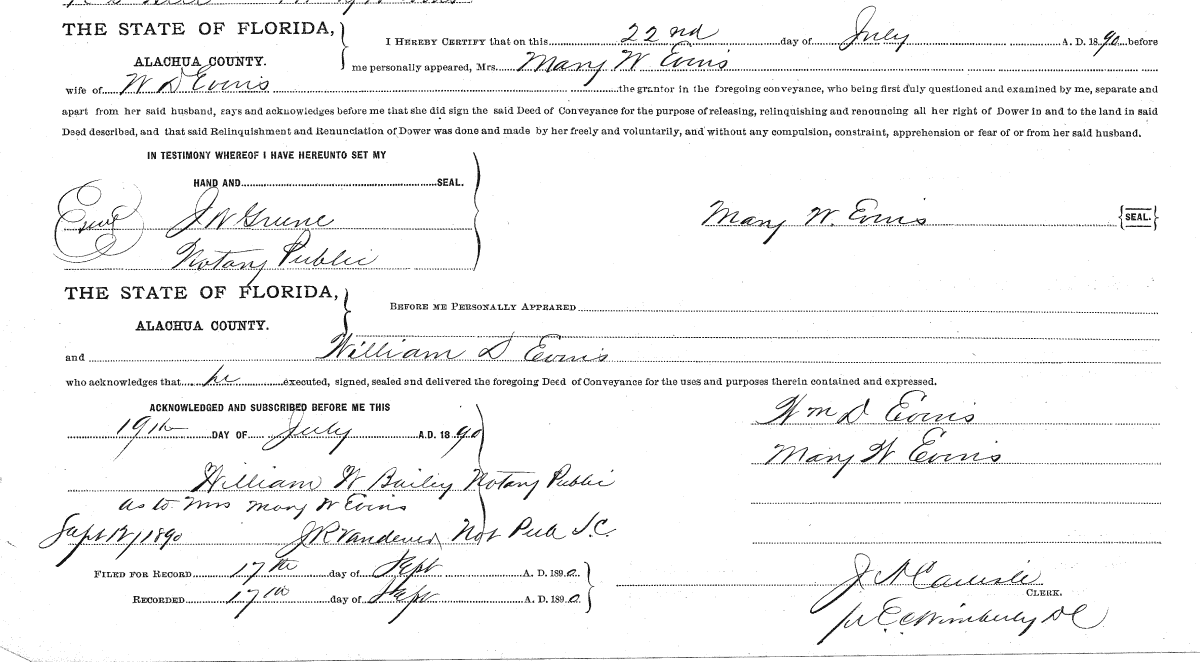 THE STATE OF FLORIDA,
ALACHUA COUNTY.
I HEREBY CERTIFY that on this 22nd day of July A. D. 1890 before
me personally appeared, Mrs. Mary W Evins
wife of W D Evins the grantor in the foregoing conveyance, who being first duly questioned and examined by me, separate and
apart from her said husband, says and acknowledges before me that she did sign the said Deed of Conveyance for the purpose of releasing, relinquishing and renouncing all her right of Dower in and to the land in said
Deed described, and that said Relinquishment and Renunciation of Dower was done and made by her freely and voluntarily, and without any compulsion, constraint, apprehension or fear of or from her said husband.
IN TESTIMONY WHEREOF I HAVE HEREUNTO SET MY
HAND AND SEAL.
J W
Notary Public
Mary W. Evins {SEAL.}
THE STATE OF FLORIDA,
ALACHUA COUNTY.
BEFORE ME PERSONALLY APPEARED
and William D Evins
who acknowledges that he executed, signed, sealed and delivered the foregoing Deed of Conveyance for the uses and purposes therein contained and expressed.
ACKNOWLEDGED AND SUBSCRIBED BEFORE ME THIS
19th DAY OF July A.D. 1890
William W Bailey Notary Public
as to Mrs Mary W Evins
Sept 12/1890 J R Vandever Not Pub S.C.
FILED FOR RECORD 17th day of Sept A. D. 1890.
RECORDED 17th day of Sept A. D. 1890.
Wm D Evins
Mary W Evins
J A Carlisle
CLERK.
pr C C Wimberly DC